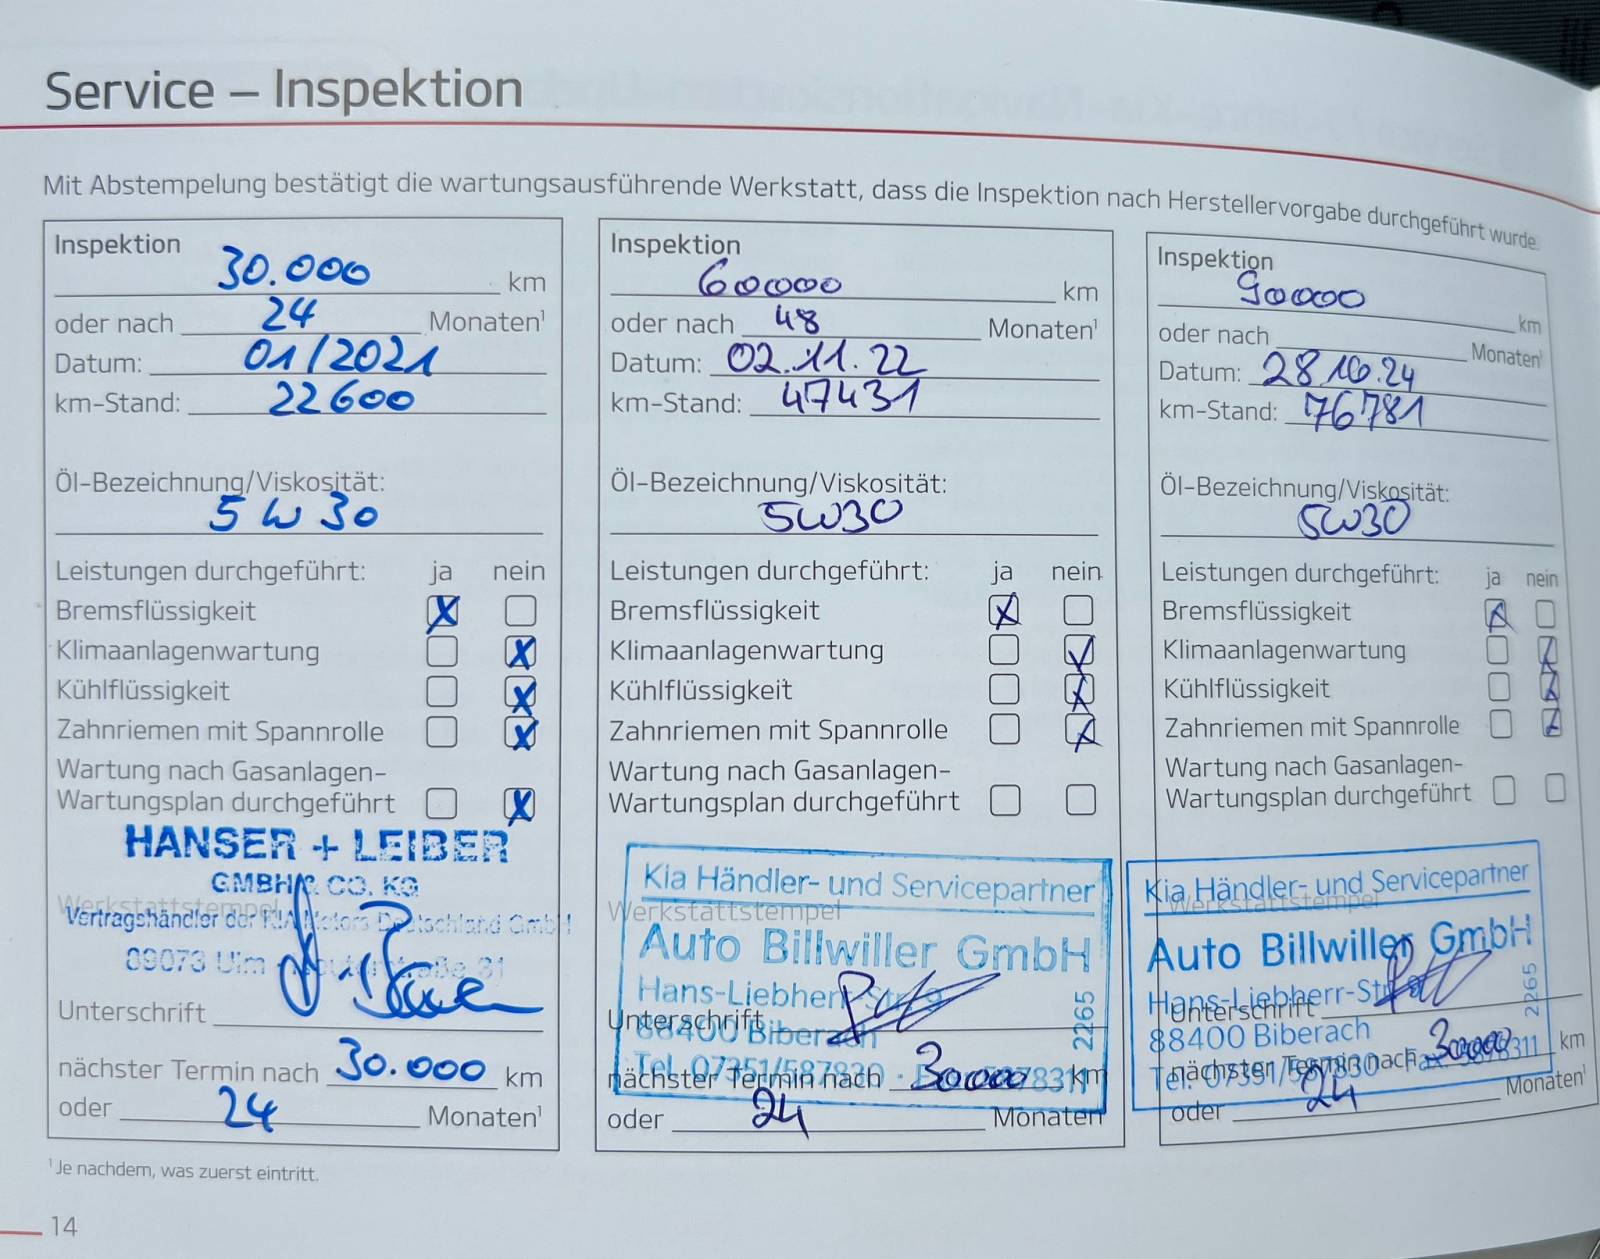 Service – Inspektion
Mit Abstempelung bestätigt die wartungsausführende Werkstatt, dass die Inspektion nach Herstellervorgabe durchgeführt wurde.
Inspektion
30.000 km
oder nach 24 Monaten¹
Datum: 01/2021
km-Stand: 22600
Öl-Bezeichnung/Viskosität:
5W30
Leistungen durchgeführt: ja nein
Bremsflüssigkeit X
Klimaanlagenwartung X
Kühlflüssigkeit X
Zahnriemen mit Spannrolle X
Wartung nach Gasanlagen-
Wartungsplan durchgeführt X
HANSER + LEIBER
GMBH & CO. KG
Werkstattstempel
Vertragshändler der KIA Motors Deutschland GmbH
89073 Ulm
Unterschrift
nächster Termin nach 30.000 km
oder 24 Monaten¹
Inspektion
60000 km
oder nach 48 Monaten¹
Datum: 02.11.22
km-Stand: 47431
Öl-Bezeichnung/Viskosität:
5W30
Leistungen durchgeführt: ja nein
Bremsflüssigkeit X
Klimaanlagenwartung X
Kühlflüssigkeit X
Zahnriemen mit Spannrolle X
Wartung nach Gasanlagen-
Wartungsplan durchgeführt
Kia Händler- und Servicepartner
Werkstattstempel
Auto Billwiller GmbH
Hans-Liebherr-Str. 9
Unterschrift
88400 Biberach
2265
Tel. 07351/587830
nächster Termin nach 30000 km
oder 24 Monaten¹
Inspektion
90000 km
oder nach Monaten¹
Datum: 28.10.24
km-Stand: 76781
Öl-Bezeichnung/Viskosität:
5W30
Leistungen durchgeführt: ja nein
Bremsflüssigkeit X
Klimaanlagenwartung X
Kühlflüssigkeit X
Zahnriemen mit Spannrolle X
Wartung nach Gasanlagen-
Wartungsplan durchgeführt
Kia Händler- und Servicepartner
Werkstattstempel
Auto Billwiller GmbH
Hans-Liebherr-Str.
Unterschrift
88400 Biberach
2265
Tel. 07351/587830
nächster Termin nach 30000 km
oder 24 Monaten¹
¹ Je nachdem, was zuerst eintritt.
14